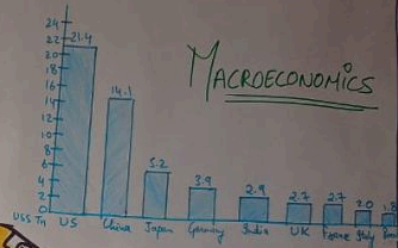 MACROECONOMICS
24
22
20
18
16
14
12
10
8
6
4
2
0
21.4
14.1
5.2
3.9
2.9
2.7
2.7
2.0
1.8
US$ Tn
US China Japan Germany India UK France Italy